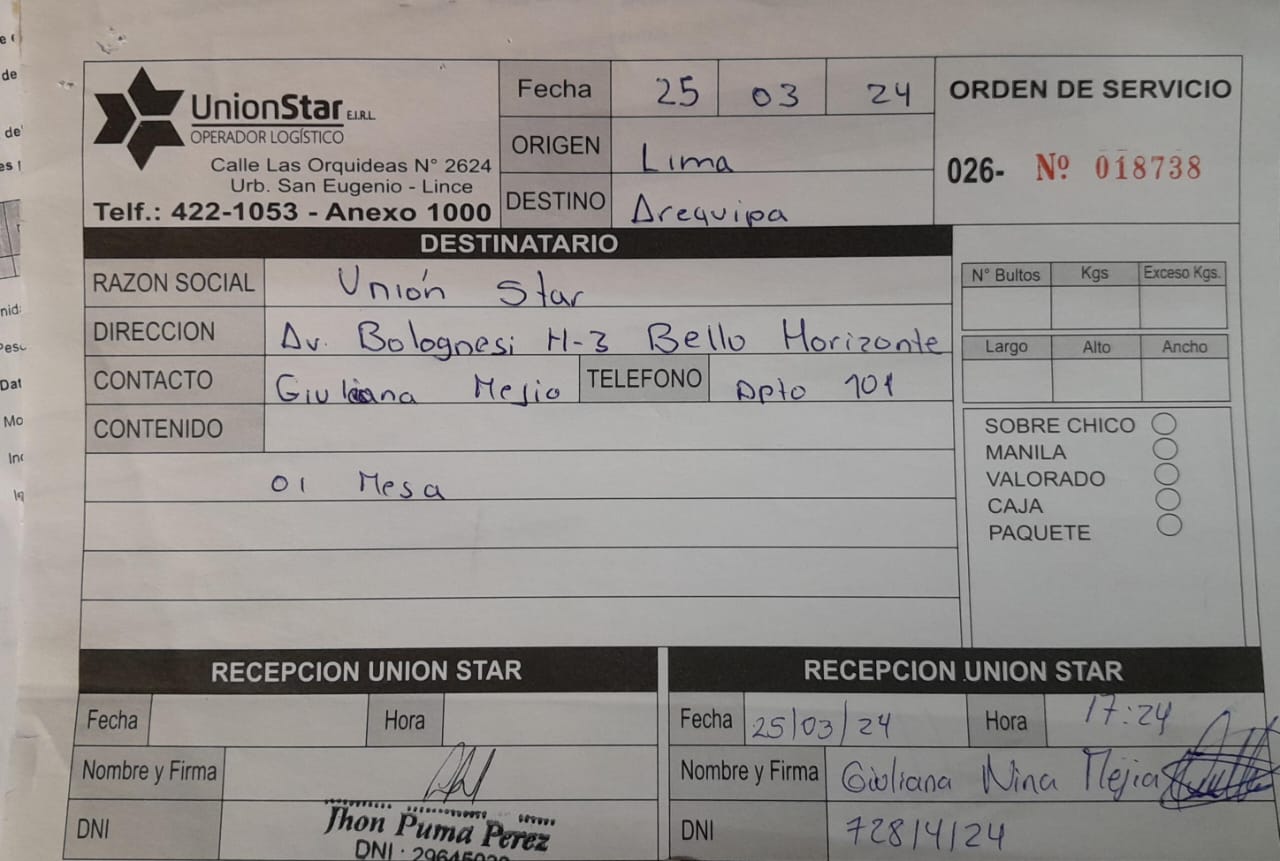 UnionStar E.I.R.L.
OPERADOR LOGÍSTICO
Calle Las Orquideas N° 2624
Urb. San Eugenio - Lince
Telf.: 422-1053 - Anexo 1000
Fecha 25 03 24
ORIGEN Lima
DESTINO Arequipa
ORDEN DE SERVICIO
026- Nº 018738
DESTINATARIO
RAZON SOCIAL Unión Star
DIRECCION Av. Bolognesi H-3 Bello Horizonte
CONTACTO Giuliana Mejio TELEFONO Dpto 101
CONTENIDO
01 Mesa
N° Bultos Kgs Exceso Kgs.
Largo Alto Ancho
SOBRE CHICO
MANILA
VALORADO
CAJA
PAQUETE
RECEPCION UNION STAR
Fecha Hora
Nombre y Firma
DNI
Jhon Puma Perez
DNI
RECEPCION UNION STAR
Fecha 25/03/24 Hora 17:24
Nombre y Firma Giuliana Nina Mejia
DNI 72814124